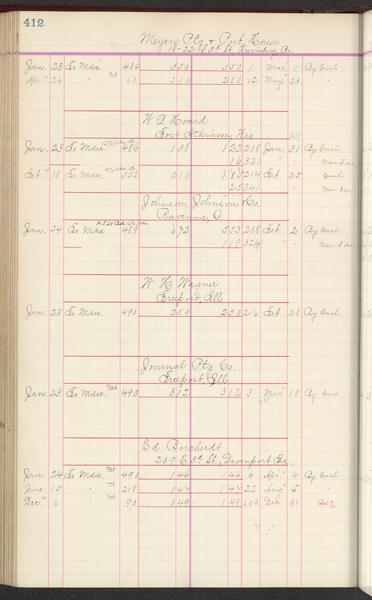 412
Meyers Ptg & Pub. House
18-22 S 3rd St, Harrisburg, Pa
Jan. 23 To Mdse. 484 350 350 1 Mar. 1 By Cash
Apr. 26 " 60 200 200 12 May 23 "
W. D. Hoard
Fort Atkinson, Wis
Jan. 23 To Mdse. 486 138 122 208 Jan. 31 By Cash
16 320
Feb. 18 To Mdse. 332 210 Feb. 25 Cash
253 41
Johnson, Johnson & Co.
Ravenna, O.
Jan. 24 To Mdse 489 672 553 208 Feb. 2 By Cash
119 324
W. H. Wagner
Freeport, Ill
Jan. 23 To Mdse. 490 250 250 216 Feb. 28 By Cash
Journal Ptg Co.
Freeport, Ill
Jan. 23 To Mdse. 490 312 312 3 Mar. 18 By Cash
Ed. Borcherdt
209 E. 3rd St., Davenport
Jan. 24 To Mdse. 491 146 146 6 Apr. 4 By Cash
June 15 " 218 147 147 22 Aug. 5 "
Dec. 6 " 90 149 149 Dec. 31